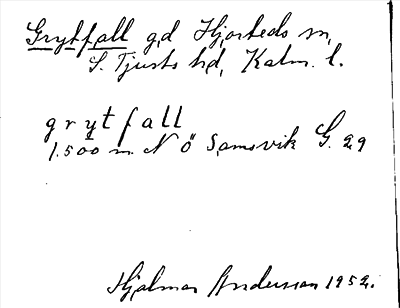 Grytfall gd Hjorteds sn,
S. Tjusts hd, Kalm. l.
grytfall
1.500 m N Ö Samsvik G. 29
Hjalmar Andersson 1952.